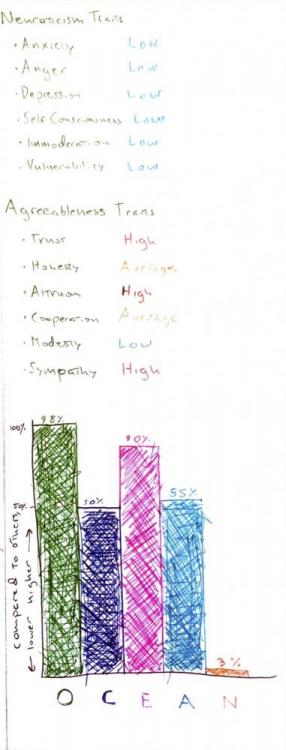 Neuroticism Traits
· Anxiety Low
· Anger Low
· Depression Low
· Self Consciousness Low
· Immoderation Low
· Vulnerability Low
Agreeableness Traits
· Trust High
· Honesty Average
· Altruism High
· Cooperation Average
· Modesty Low
· Sympathy High
98%
100%
90%
50%
50%
55%
compared to others
← lower higher →
3%
O C E A N